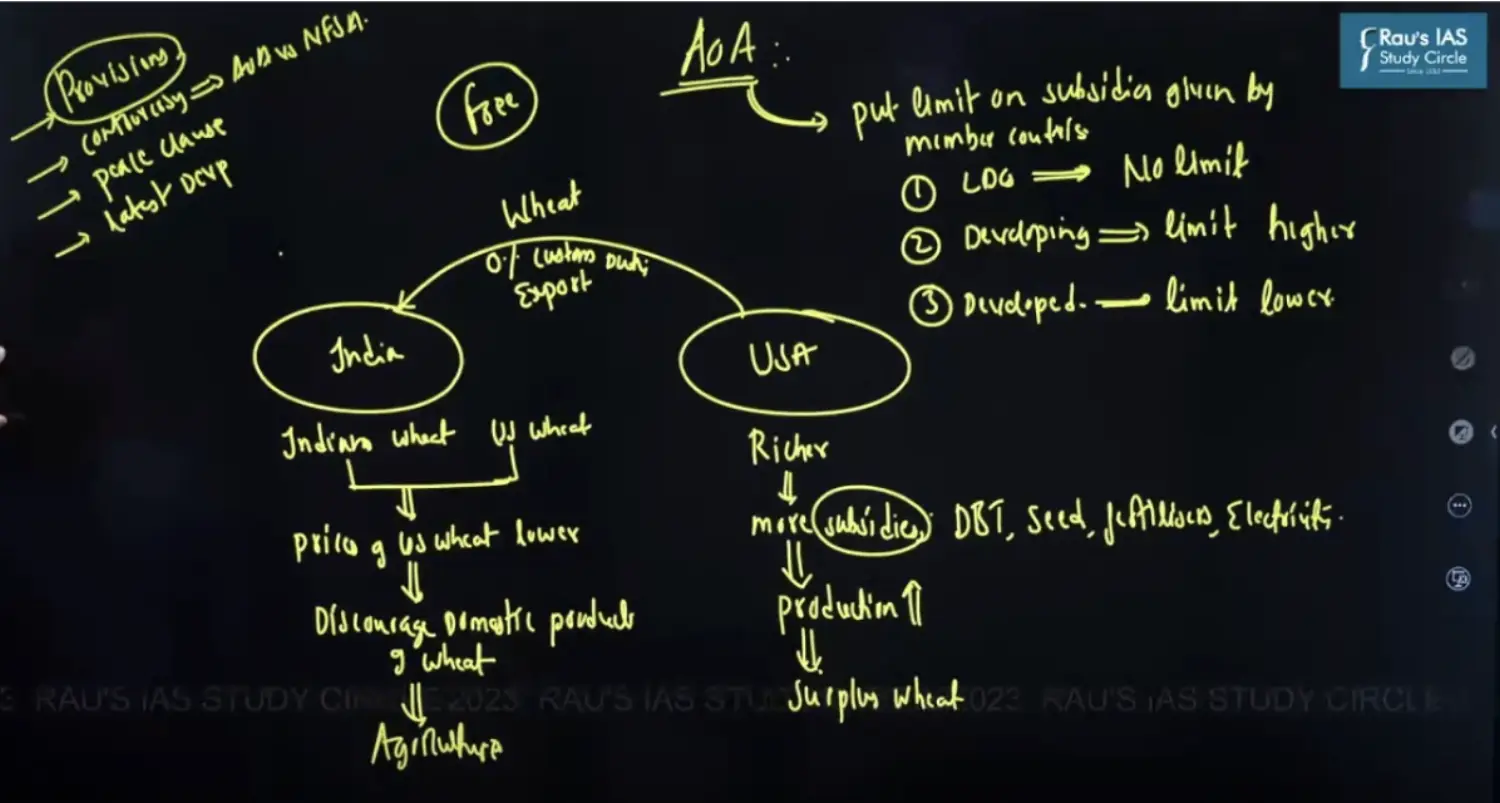 Provisions
controversy ⇒ AOA vs NFSA.
peace clause
Latest Devp
Free
AOA
put limit on subsidies given by
member
① LDC ⇒ No limit
② Developing ⇒ limit higher
③ Developed. — limit lower
Rau's IAS
Study Circle
Wheat
0% Custom Duty
Export
India
USA
Indian wheat US wheat
prices of US wheat lower
Discourage Domestic
of wheat
Agriculture
Richer
more subsidies DBT, Seed, fertilisers, Electricity.
production ⇑
Surplus wheat
RAU'S IAS STUDY CIRCLE 2023 RAU'S IAS STUDY 2023 RAU'S IAS STUDY CIRCLE